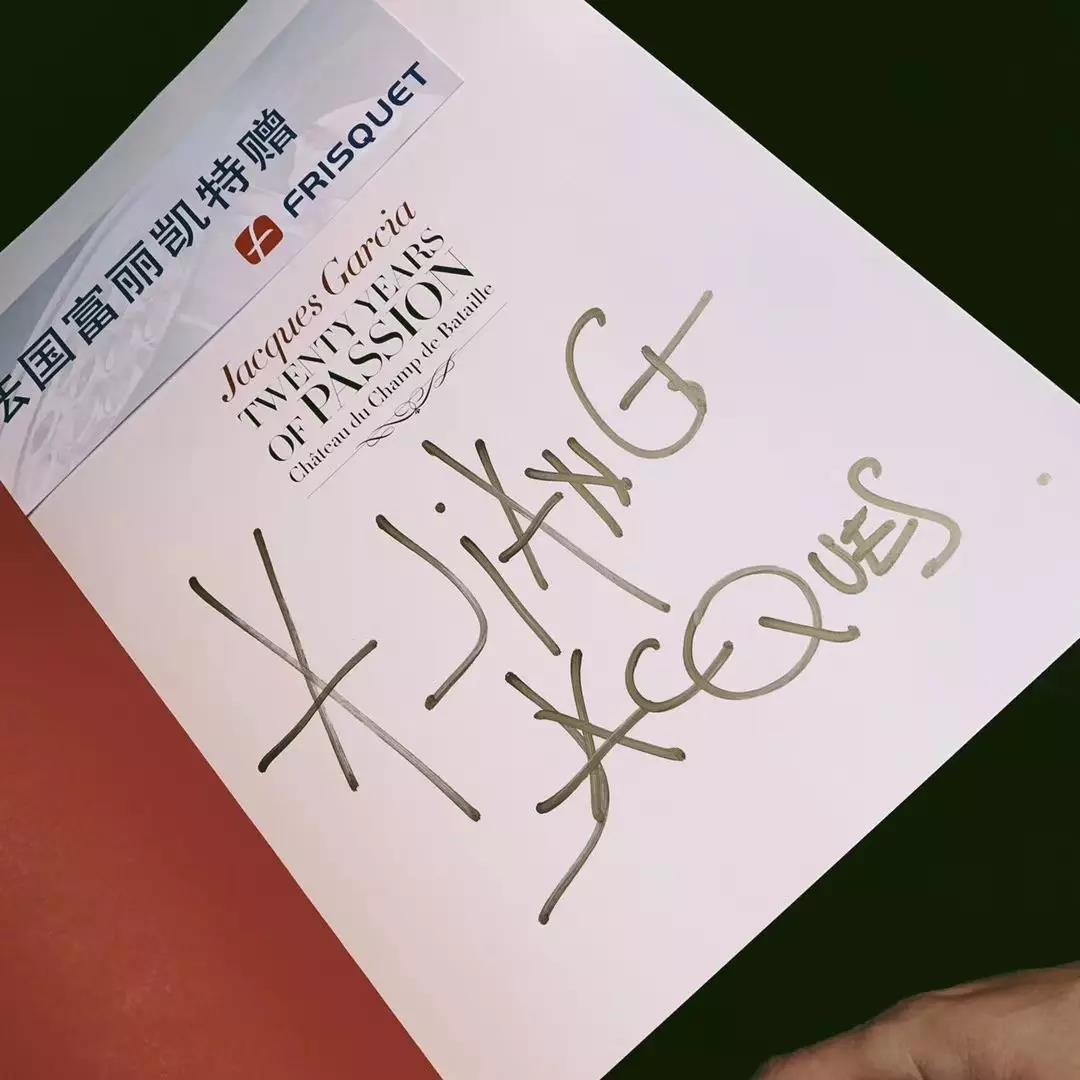 法国富丽凯特赠
FRISQUET
Jacques Garcia
TWENTY YEARS
OF PASSION
Château du Champ de Bataille
A JIANG
JACQUES